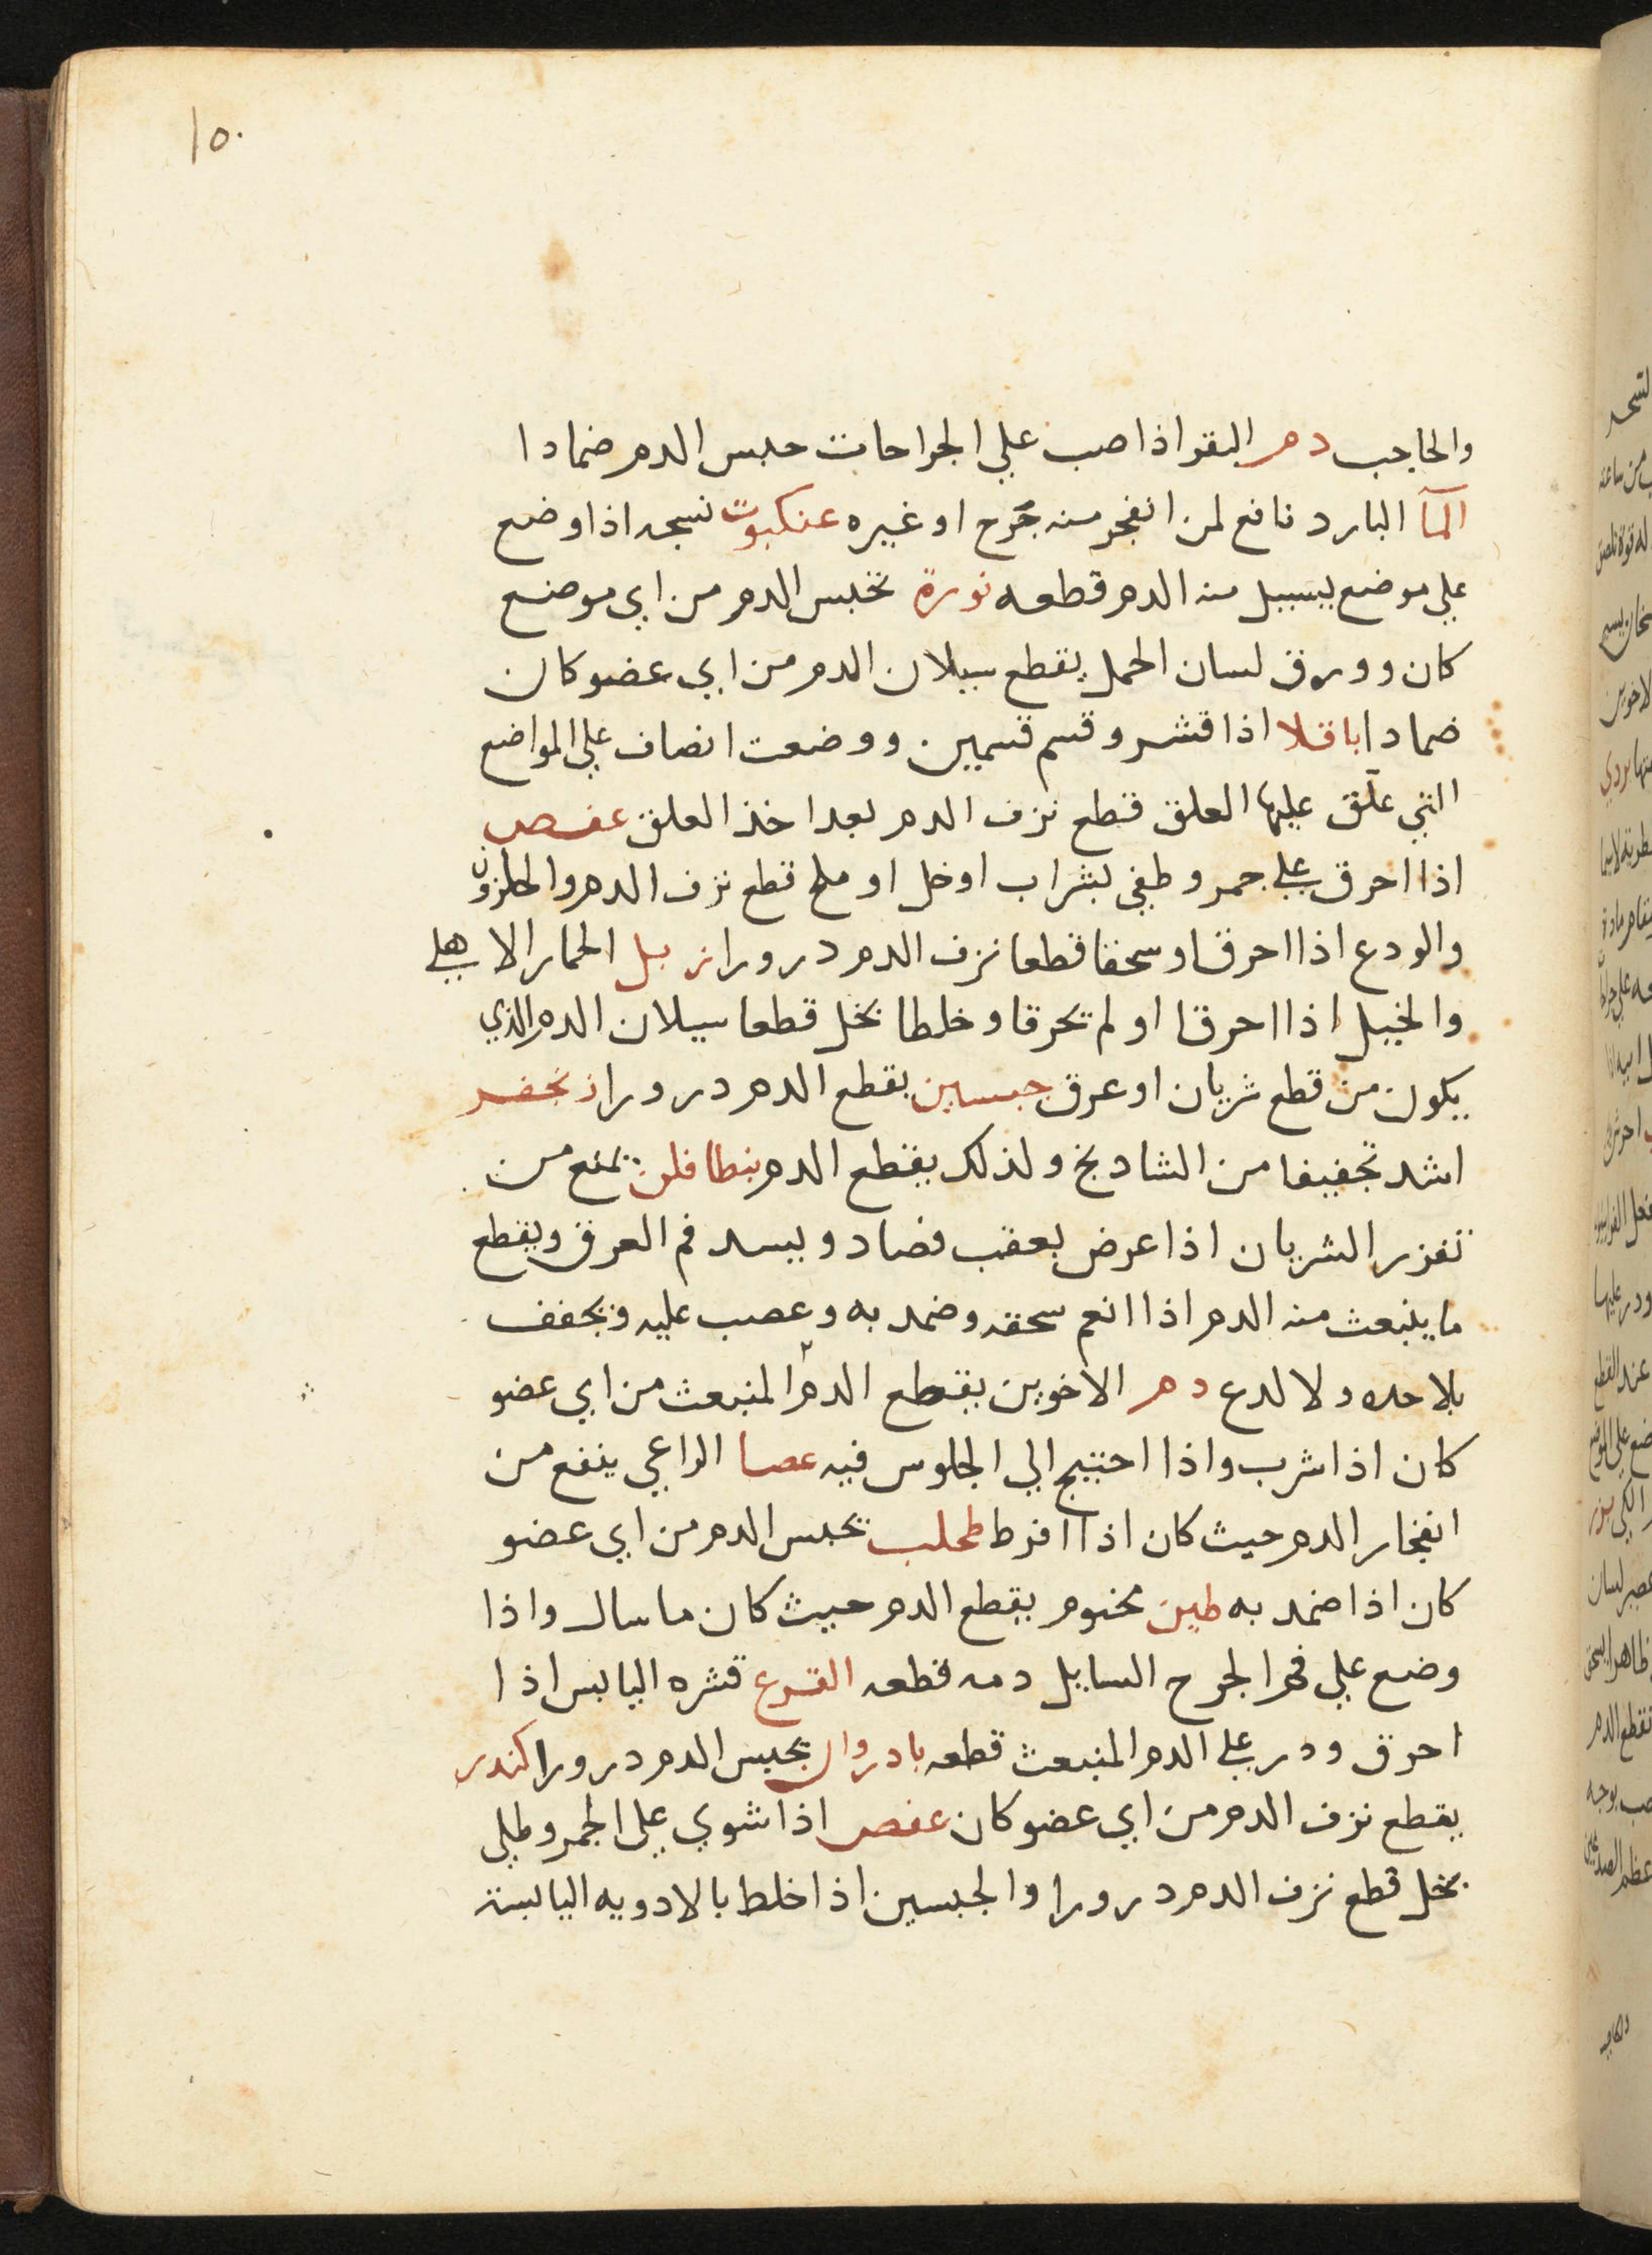 ١٥٠
والحاجب دم البقر اذا صب علي الجراحات حبس الدم ضمادا
المآ البارد نافع لمن انفجر منه جرح او غيره عنكبوت نسجه اذا وضع
علي موضع يسيل منه الدم قطعه نورة تحبس الدم من اي موضع
كان وورق لسان الحمل يقطع سيلان الدم من اي عضو كان
ضمادا باقلا اذا قشر وقسم قسمين ووضعت انصاف علي المواضع
التي علق عليها العلق قطع نزف الدم بعد اخذ العلق عفص
اذا احرق علي جمر وطفي بشراب او خل او ملح قطع نزف الدم والحلزون
والودع اذا احرقا وسحقا قطعا نزف الدم درورا زبل الحمار الاهلي
والخيل اذا احرقا او لم يحرقا وخلطا بخل قطعا سيلان الدم الذي
يكون من قطع شريان او عرق جبسين يقطع الدم درورا زنجفر
اشد تجفيفا من الشادنج ولذلك يقطع الدم بنطافلن يمنع من
تفزر الشريان اذا عرض بعقب فصاد ويسد فم العرق ويقطع
ما ينبعث منه الدم اذا انعم سحقه وضمد به وعصب عليه ويجفف
بلا حده ولا لدع دم الاخوين يقطع الدم المنبعث من اي عضو
كان اذا شرب واذا احتيج الي الجلوس فيه عصا الراعي ينفع من
انفجار الدم حيث كان اذا افرط طحلب يحبس الدم من اي عضو
كان اذا ضمد به طين مختوم يقطع الدم حيث كان ما سال واذا
وضع علي فم الجرح السايل دمه قطعه القرع قشره اليابس اذا
احرق ودر علي الدم المنبعث قطعه بادروان يحبس الدم درورا كندر
يقطع نزف الدم من اي عضو كان عفص اذا شوي علي الجمر وطلي
بخل قطع نزف الدم درورا والجبسين اذا خلط بالادويه اليابسة